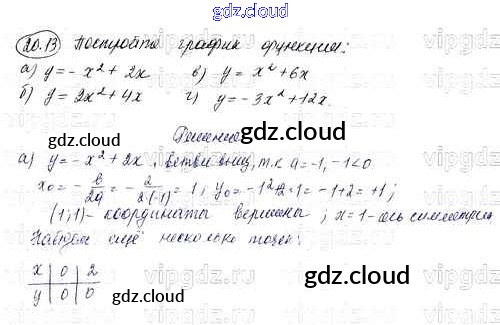 gdz.cloud
20.13 Постройте график функции:
а) y = - x² + 2x  в) y = x² + 6x
б) y = 2x² + 4x  г) y = -3x² + 12x
gdz.cloud
Решение
gdz.cloud
а) y = -x² + 2x, ветви вниз, т.к a = -1, -1<0
x₀ = - в/2a = - 2/2·(-1) = 1; y₀ = -1² + 2·1 = -1+2 = +1;
(1;1) - координата вершины; x = 1 - ось симметрии
Найдем ещё несколько точек:
x | 0 | 2
y | 0 | 0
gdz.cloud
gdz.cloud